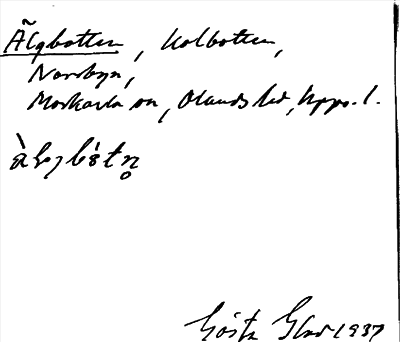 Älgbotten, Kolbotten,
Norrbyn,
Morkarla sn, Olands hd, Upps. l.
Gösta Glad 1937